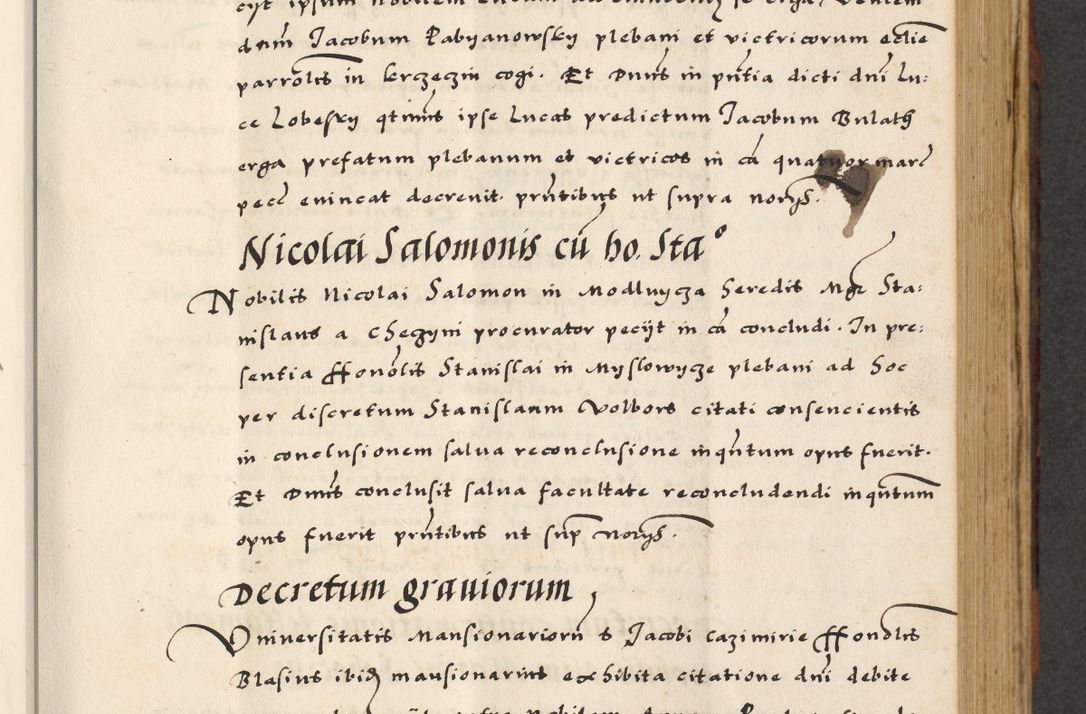 dnm Jacobum Rabyanowsky plebani et victricorum eclie
parrolis in krzeczin cogi. Et Dnus in pntia dicti dni Lu:
ce Lobesky qtinus ipse Lucas predictum Jacobum Bulath
erga prefatum plebanum et victricos in ca quatuor marc
pecc evincat decrevit. prntibus ut supra norys.
Nicolai Salomonis cu ho. Sta°
Nobilis Nicolai Salomon in Modlnycza heredis Mgr Sta:
nislaus a Checzyni procurator pecijt in ca concludi. In pre:
sentia ffonolis Stanislai in Myslowycze plebani ad hoc
per discretum Stanislaum Volbors citati consencientis
in conclusionem salva reconclusione inqntum opus fuerit.
Et Dnus conclusit salva facultate reconcludendi inqntum
opus fuerit prntibus ut sup norys.
Decretum graviorum
Universitatis Mansionarioru s Jacobi Cazimirie ffonolis
Blasius ibid mansionarius exhibita citatione dni debite